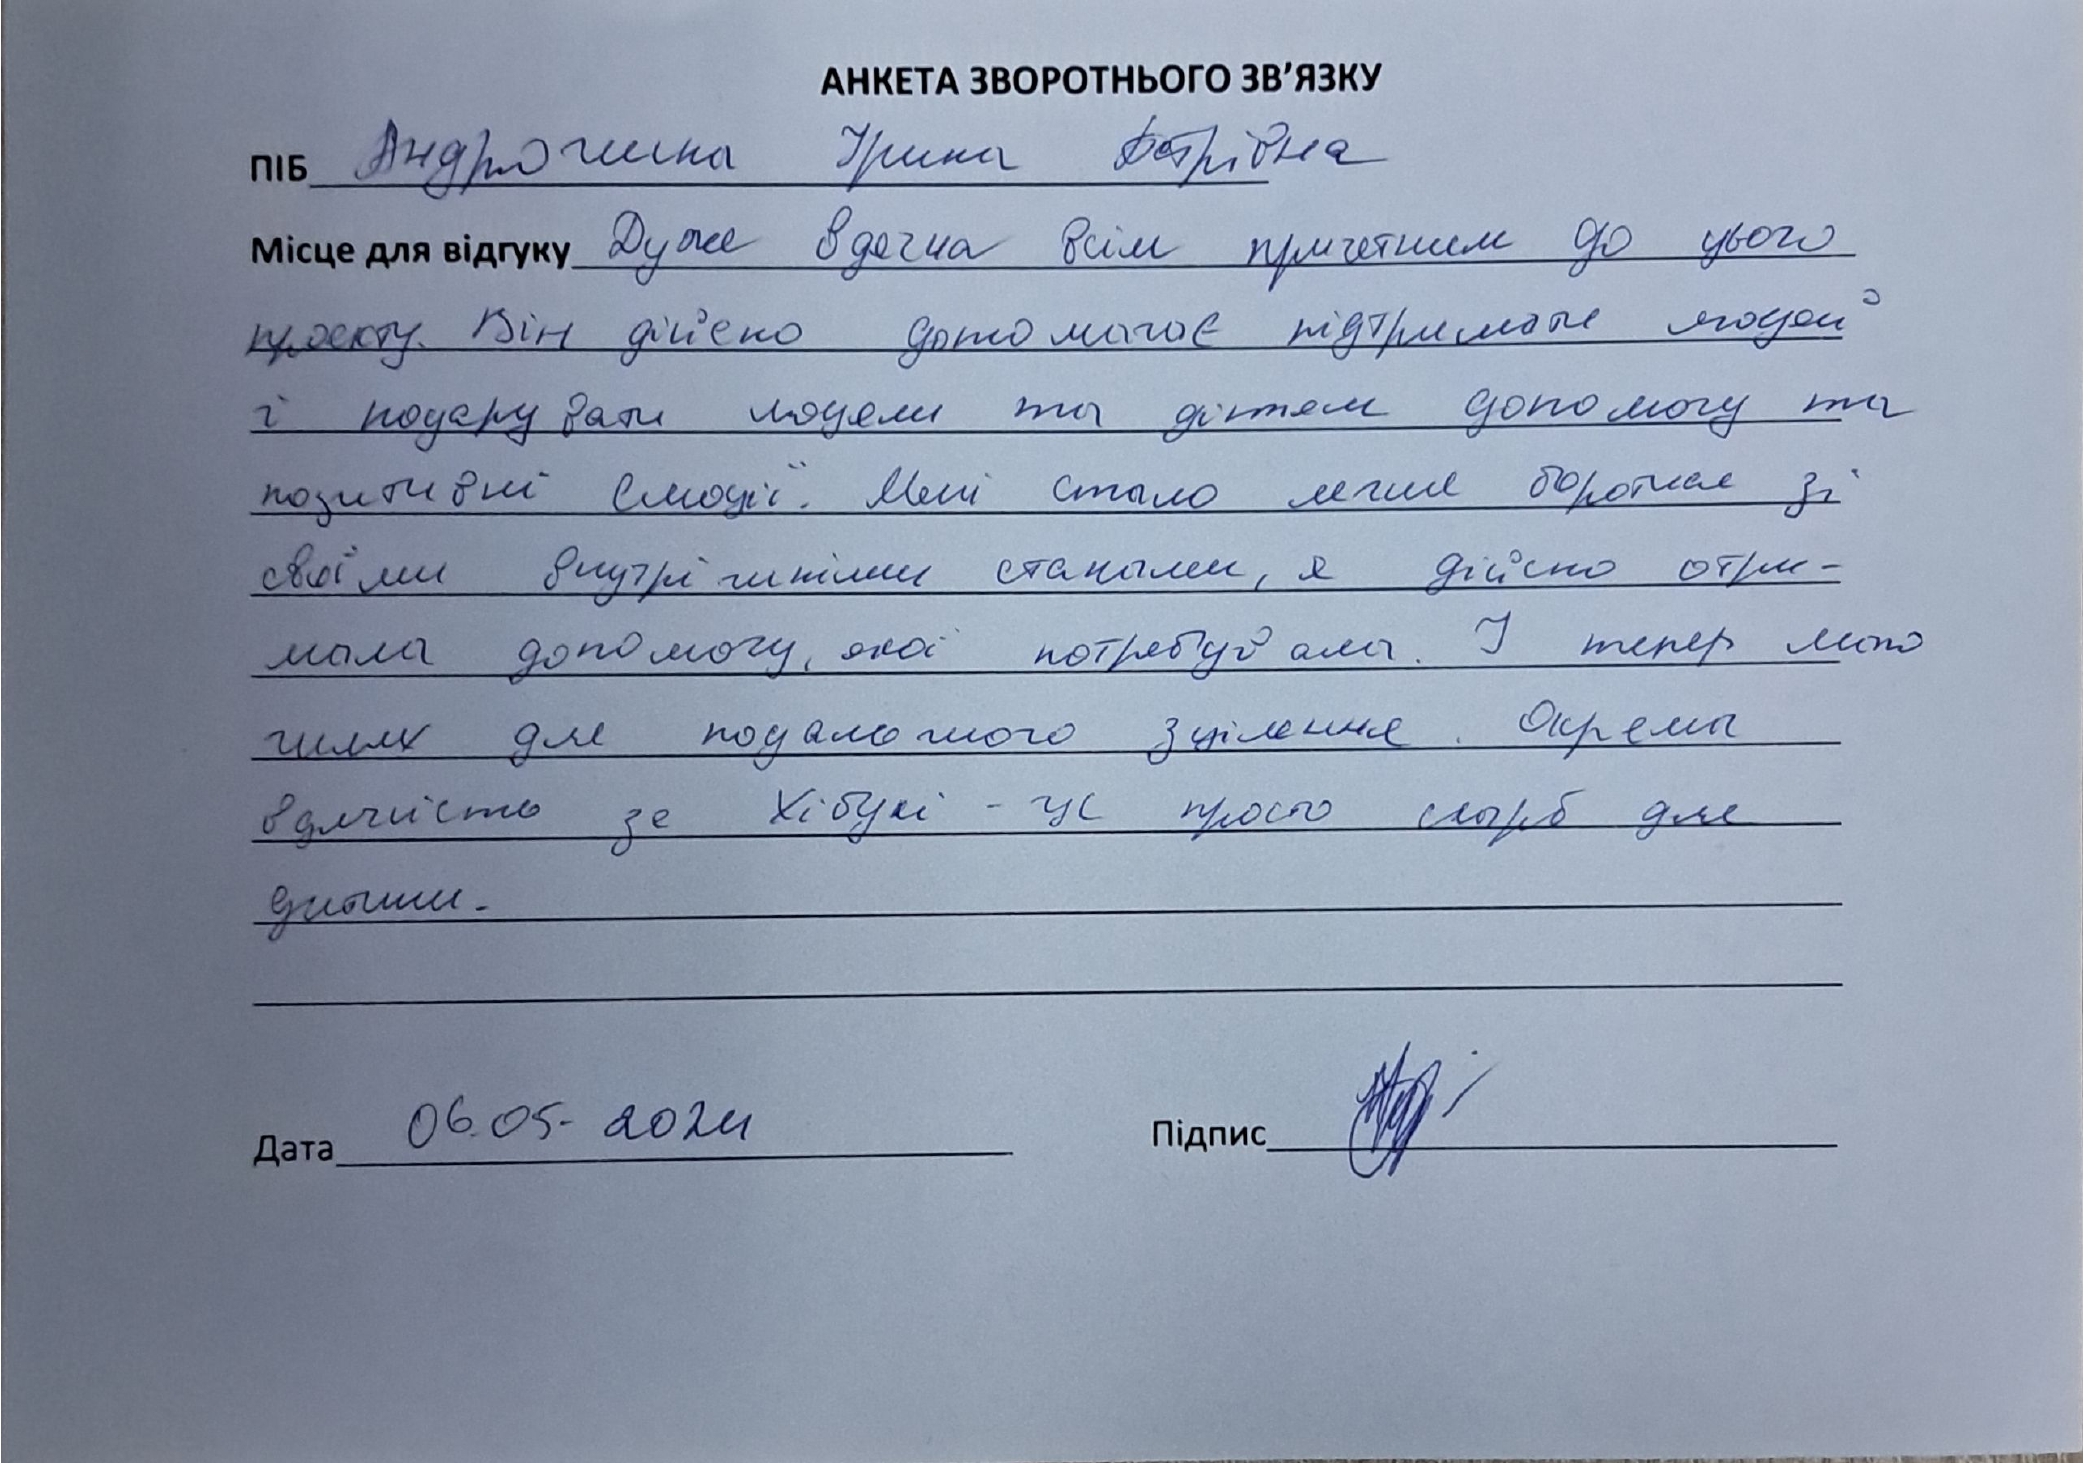 АНКЕТА ЗВОРОТНЬОГО ЗВ'ЯЗКУ
ПІБ Ірина
Місце для відгуку Дуже вдячна всім причетним до цього
проекту. Він дійсно допомагає підтримати людей
і подарувати людям та дітям допомогу та
позитивні емоції. Мені стало легше боротися зі
своїми внутрішніми станами, я дійсно отри-
мала допомогу, якої потребувала. І тепер маю
шлях для подальшого зцілення. Окрема
вдячність за Хібукі - це просто скарб для
дитини.
Дата 06.05.2024
Підпис